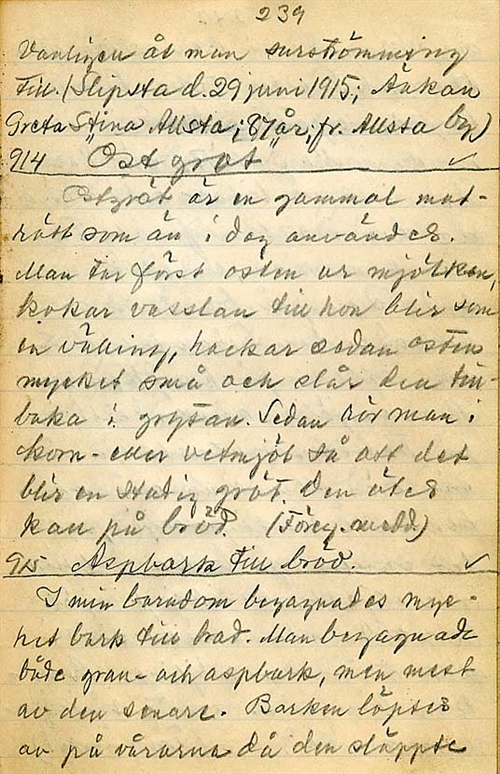 239
Vanligen åt man surströmming
till. (Slipsta d. 29 juni 1915; Änkan
Greta Stina Allsta; 87 år; fr. Allsta by)
914 Ostgröt
Ostgröt är en gammal mat-
rätt som än i dag användes.
Man tar först osten ur mjölken,
kokar vasslan till hon blir som
en välling, hackar sedan osten
mycket små och slår den till-
baka i grytan. Sedan rör man i
korn- eller vetmjöl så att det
blir en stadig gröt. Den ätes
kall på bröd. (Föreg. medd.)
915 Aspbark till bröd.
I min barndom begagnades myc-
ket bark till bröd. Man begagnade
både gran- och aspbark, men mest
av den senare. Barken löptes
av på vårarna då den släppte